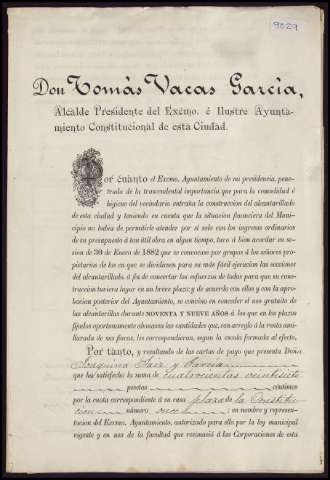 9029
Don Tomás Vacas García,
Alcalde Presidente del Excmo. é Ilustre Ayunta-
miento Constitucional de esta Ciudad.
Por cuanto el Excmo. Ayuntamiento de mi presidencia, pene-
trado de la transcendental importancia que para la comodidad é
higiene del vecindario entraña la construcción del alcantarillado
de esta ciudad y teniendo en cuenta que la situación financiera del Muni-
cipio no había de permitirle atender por sí solo con los ingresos ordinarios
de su presupuesto á tan útil obra en algun tiempo, tuvo á bien acordar en se-
sion de 30 de Enero de 1882 que se convocase por grupos á los señores pro-
pietarios de los en que se dividiesen para su más fácil ejecucion las secciones
del alcantarillado, á fin de concertar los esfuerzos de todos para que su cons-
truccion tuviera lugar en un breve plazo; y de acuerdo con ellos y con la
aprobacion posterior del Ayuntamiento, se convino en conceder el uso gratuito de
las alcantarillas durante NOVENTA Y NUEVE AÑOS á los que en los plazos
fijados oportunamente abonaren las cantidades que, con arreglo á la renta ami-
llarada de sus fincas, les correspondieran, segun la escala formada al efecto.
Por tanto, y resultando de las cartas de pago que presenta Doña
Joaquina Saiz y García
que ha satisfecho la suma de cuatrocientas veintisiete
pesetas céntimos
por la cuota correspondiente á su casa plaza de la Constitu-
cion número once; en nombre y represen-
tacion del Excmo. Ayuntamiento, autorizado para ello por la ley municipal
vigente y en uso de la facultad que reconoció á las Corporaciones de esta